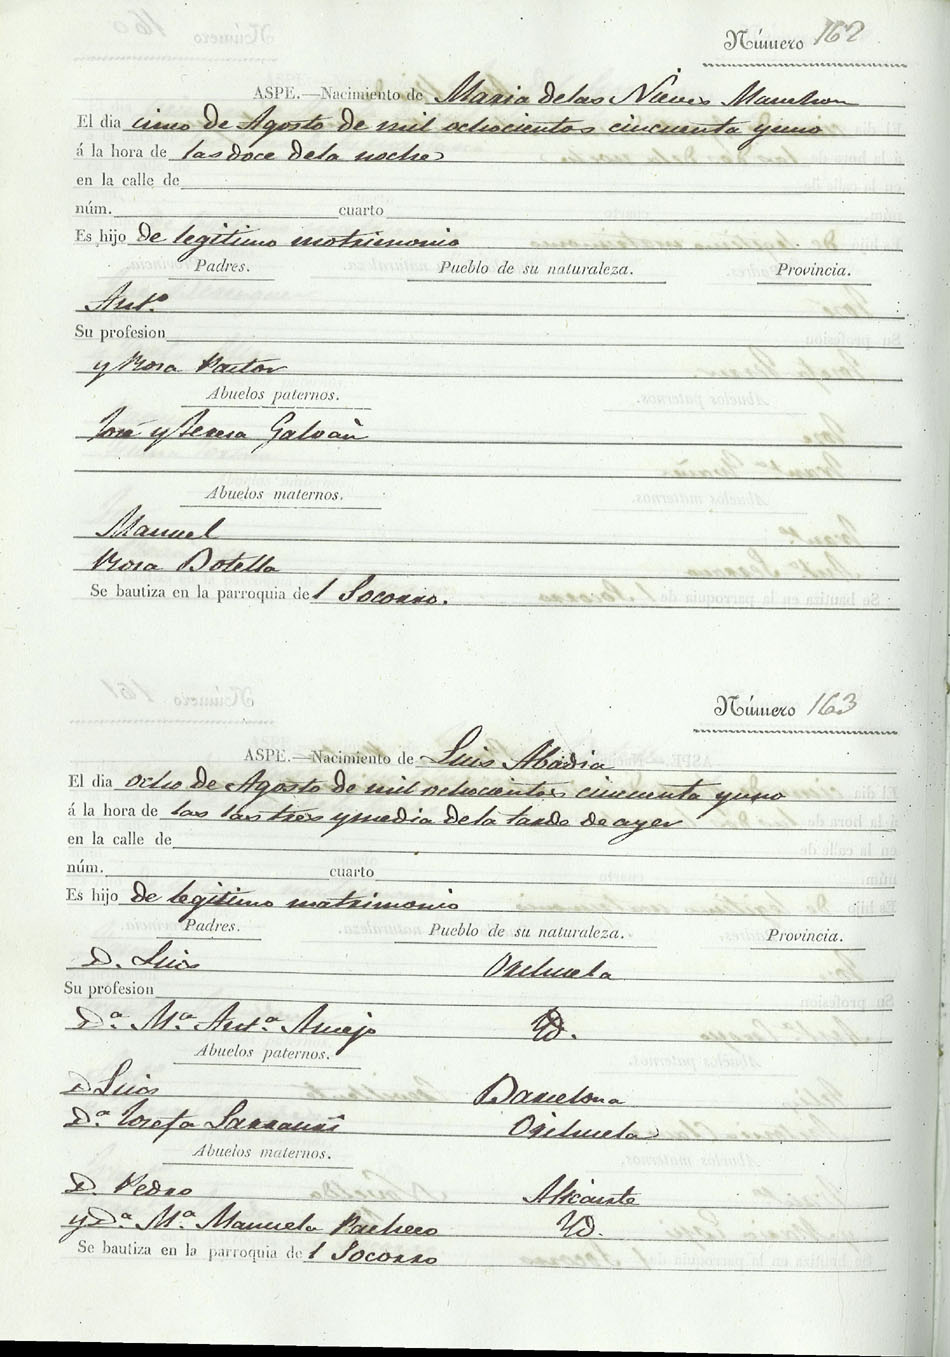 Número 162
ASPE.—Nacimiento de Maria delas Nieves Manchon
El dia cinco de Agosto de mil ochocientos cincuenta y uno
á la hora de las doce dela noche
en la calle de
núm. cuarto
Es hijo de legitimo matrimonio
Padres. Pueblo de su naturaleza. Provincia.
Antº
Su profesion
y Rosa Pastor
Abuelos paternos.
José y Teresa Galvañ
Abuelos maternos.
Manuel
Rosa Botella
Se bautiza en la parroquia del Socorro.
Número 163
ASPE.—Nacimiento de Luis Abadia
El dia ocho de Agosto de mil ochocientos cincuenta y uno
á la hora de las las tres y media dela tarde de ayer
en la calle de
núm. cuarto
Es hijo de legitimo matrimonio
Padres. Pueblo de su naturaleza. Provincia.
D. Luis Orihuela
Su profesion
Dª Mª Antª Id.
Abuelos paternos.
D Luis Barcelona
Dª Josefa Orihuela
Abuelos maternos.
D. Pedro Alicante
y Dª Mª Manuela Pacheco Id.
Se bautiza en la parroquia del Socorro